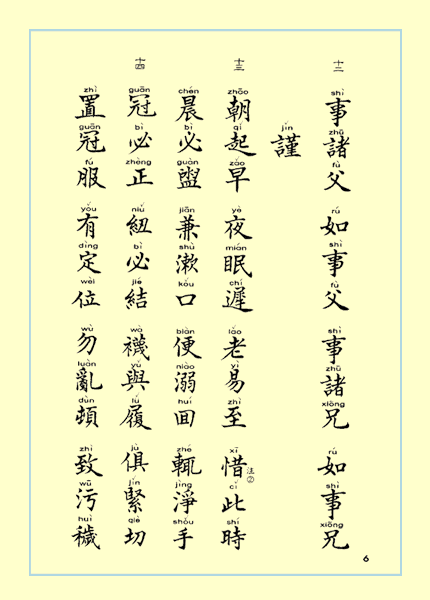 十二
shì zhū fù rú shì fù shì zhū xiōng rú shì xiōng
事諸父 如事父 事諸兄 如事兄
jǐn
謹
十三
zhāo qǐ zǎo yè mián chí lǎo yì zhì xī cǐ shí
朝起早 夜眠遲 老易至 惜注②此時
chén bì guàn jiān shù kǒu biàn niào huí zhé jìng shǒu
晨必盥 兼漱口 便溺囬 輒淨手
十四
guān bì zhèng niǔ bì jié wà yǔ lǚ jù jǐn qiè
冠必正 紐必結 襪與履 俱緊切
zhì guān fú yǒu dìng wèi wù luàn dùn zhì wū huì
置冠服 有定位 勿亂頓 致污穢
6